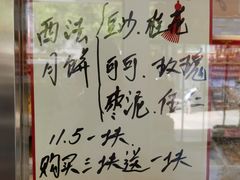 西法
月饼
豆沙.桂花
可可.玫瑰
枣泥.伍仁
11.5一块
购买三块送一块